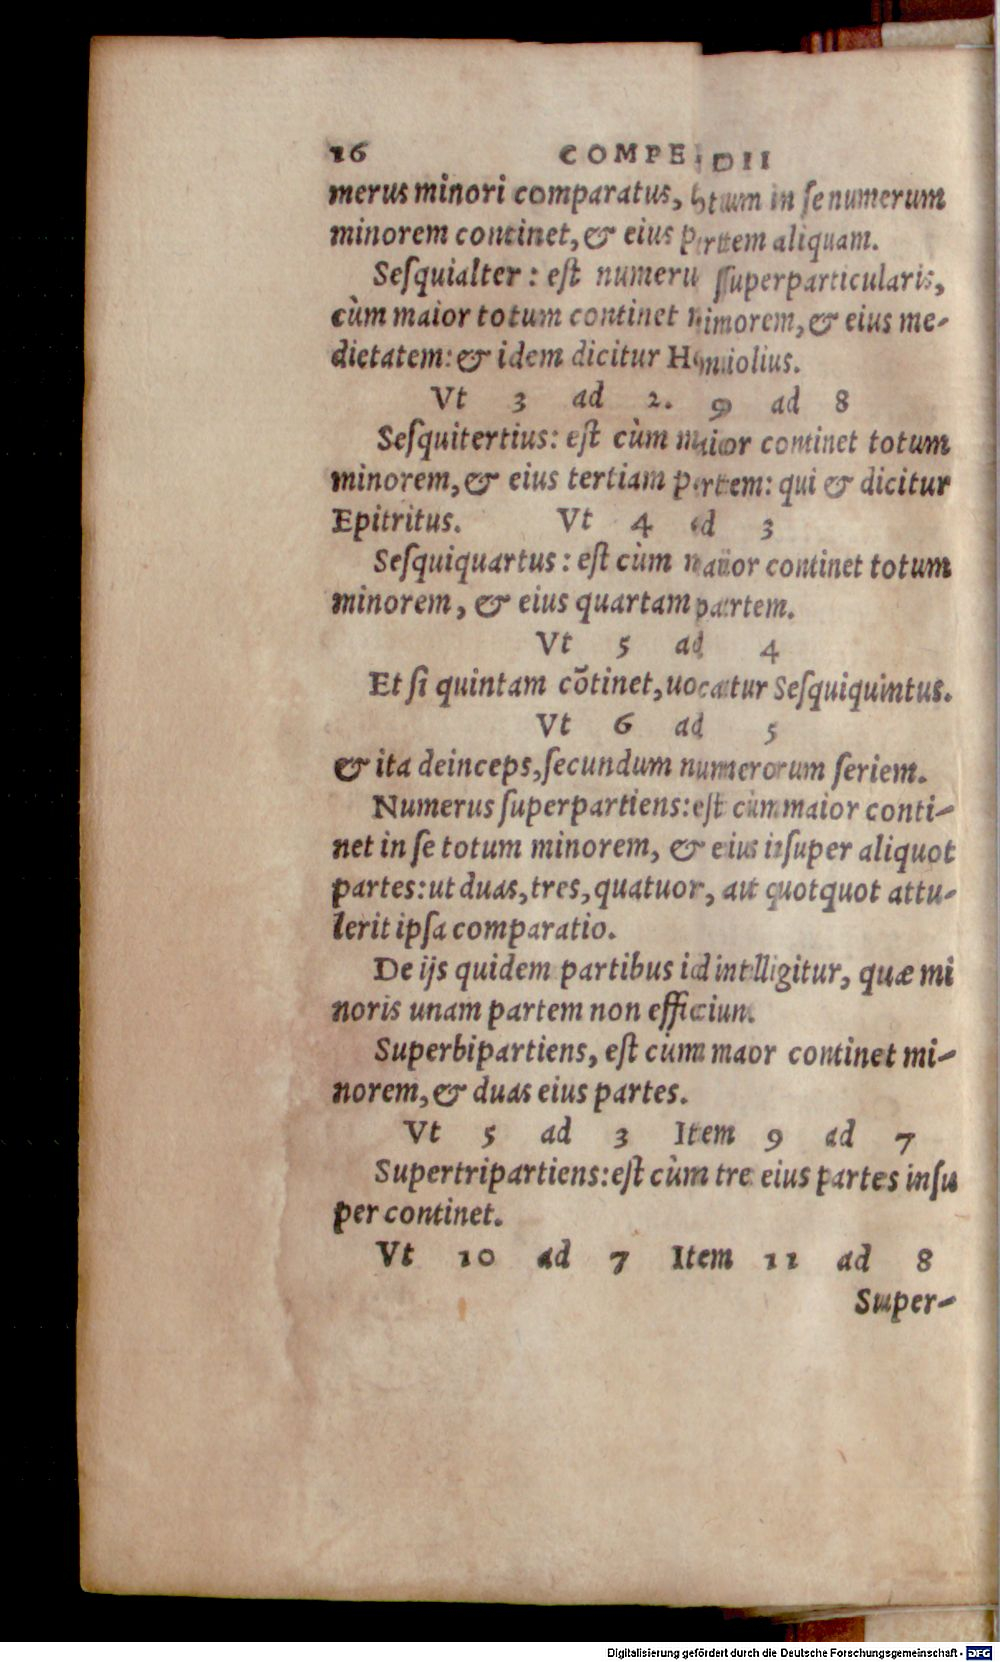 16 COMPENDII
merus minori comparatus, totum in se numerum
minorem continet, & eius partem aliquam.
Sesquialter : est numerus superparticularis,
cùm maior totum continet minorem, & eius me-
dietatem: & idem dicitur Hemiolius.
Vt 3 ad 2. 9 ad 8
Sesquitertius: est cùm maior continet totum
minorem, & eius tertiam partem: qui & dicitur
Epitritus. Vt 4 ad 3
Sesquiquartus : est cùm maior continet totum
minorem, & eius quartam partem.
Vt 5 ad 4
Et si quintam cõtinet, uocatur Sesquiquintus.
Vt 6 ad 5
& ita deinceps, secundum numerorum seriem.
Numerus superpartiens: est cùm maior conti-
net in se totum minorem, & eius insuper aliquot
partes: ut duas, tres, quatuor, aut quotquot attu-
lerit ipsa comparatio.
De ijs quidem partibus id intelligitur, quæ mi
noris unam partem non efficiunt.
Superbipartiens, est cùm maior continet mi-
norem, & duas eius partes.
Vt 5 ad 3 Item 9 ad 7
Supertripartiens: est cùm tres eius partes insu
per continet.
Vt 10 ad 7 Item 11 ad 8
Super-
Digitalisierung gefördert durch die Deutsche Forschungsgemeinschaft - DFG